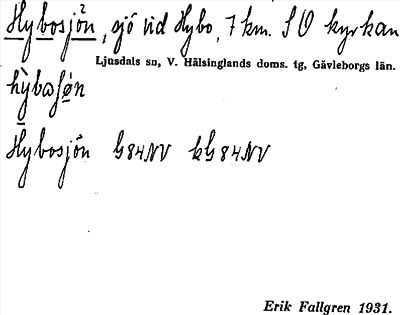 Hybosjön², sjö vid Hybo, 7 km. SO kyrkan
Ljusdals sn, V. Hälsinglands doms. tg, Gävleborgs län.
hỳbaʃø̀n
Hybosjön G84NV kG84NV
Erik Fallgren 1931.